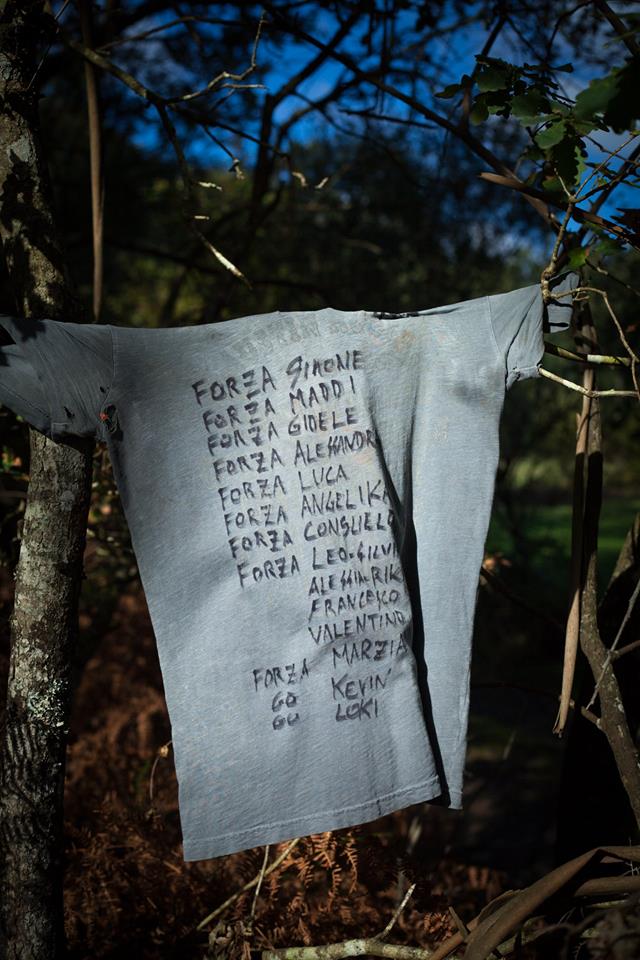 FORZA SIMONE
FORZA MADDI
FORZA GIOELE
FORZA ALESSANDR
FORZA LUCA
FORZA ANGELIKA
FORZA CONSUELO
FORZA LEO-SILVI
ALESSIA-RIK
FRANCESCO
VALENTINO
FORZA MARZIA
GO KEVIN
GO LOKI